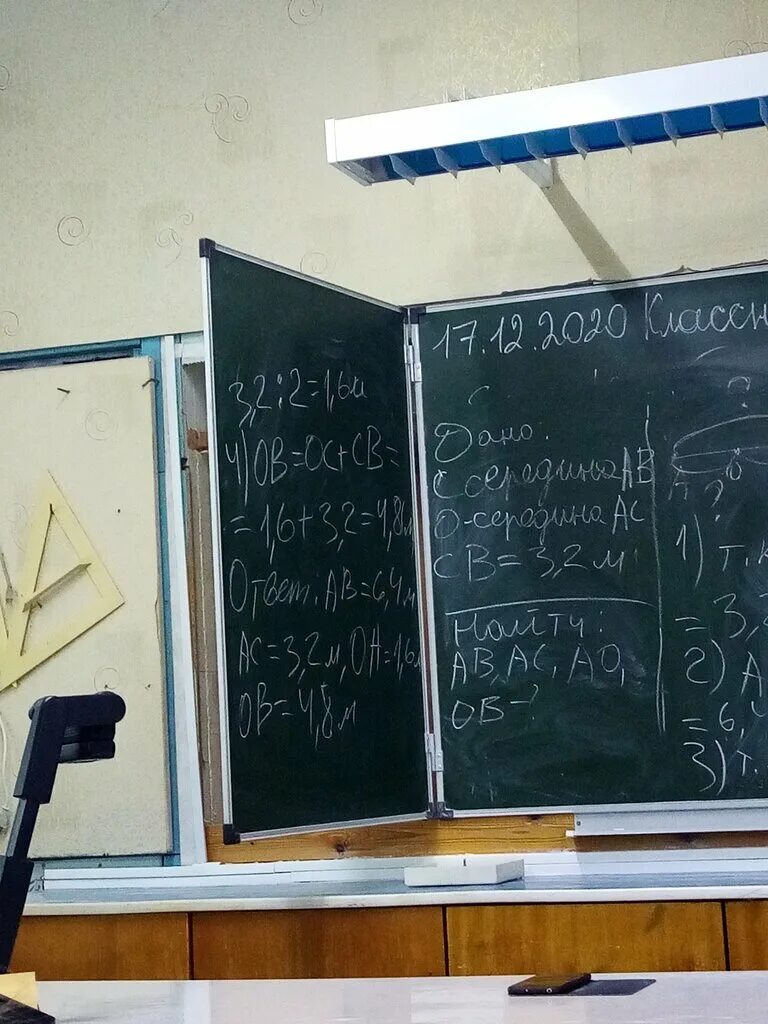 3,2:2=1,6м
4) OB=OC+CB=
=1,6+3,2=4,8м
Ответ: AB=6,4м
AC=3,2м, OH=1,6м
OB=4,8м
17.12.2020 Классн
Дано:
C середина AB
O-середина AC
CB=3,2м
Найти:
AB, AC, AO,
OB-?
?
?
1) т.к
=3,
2) A
=6,4
3) т.